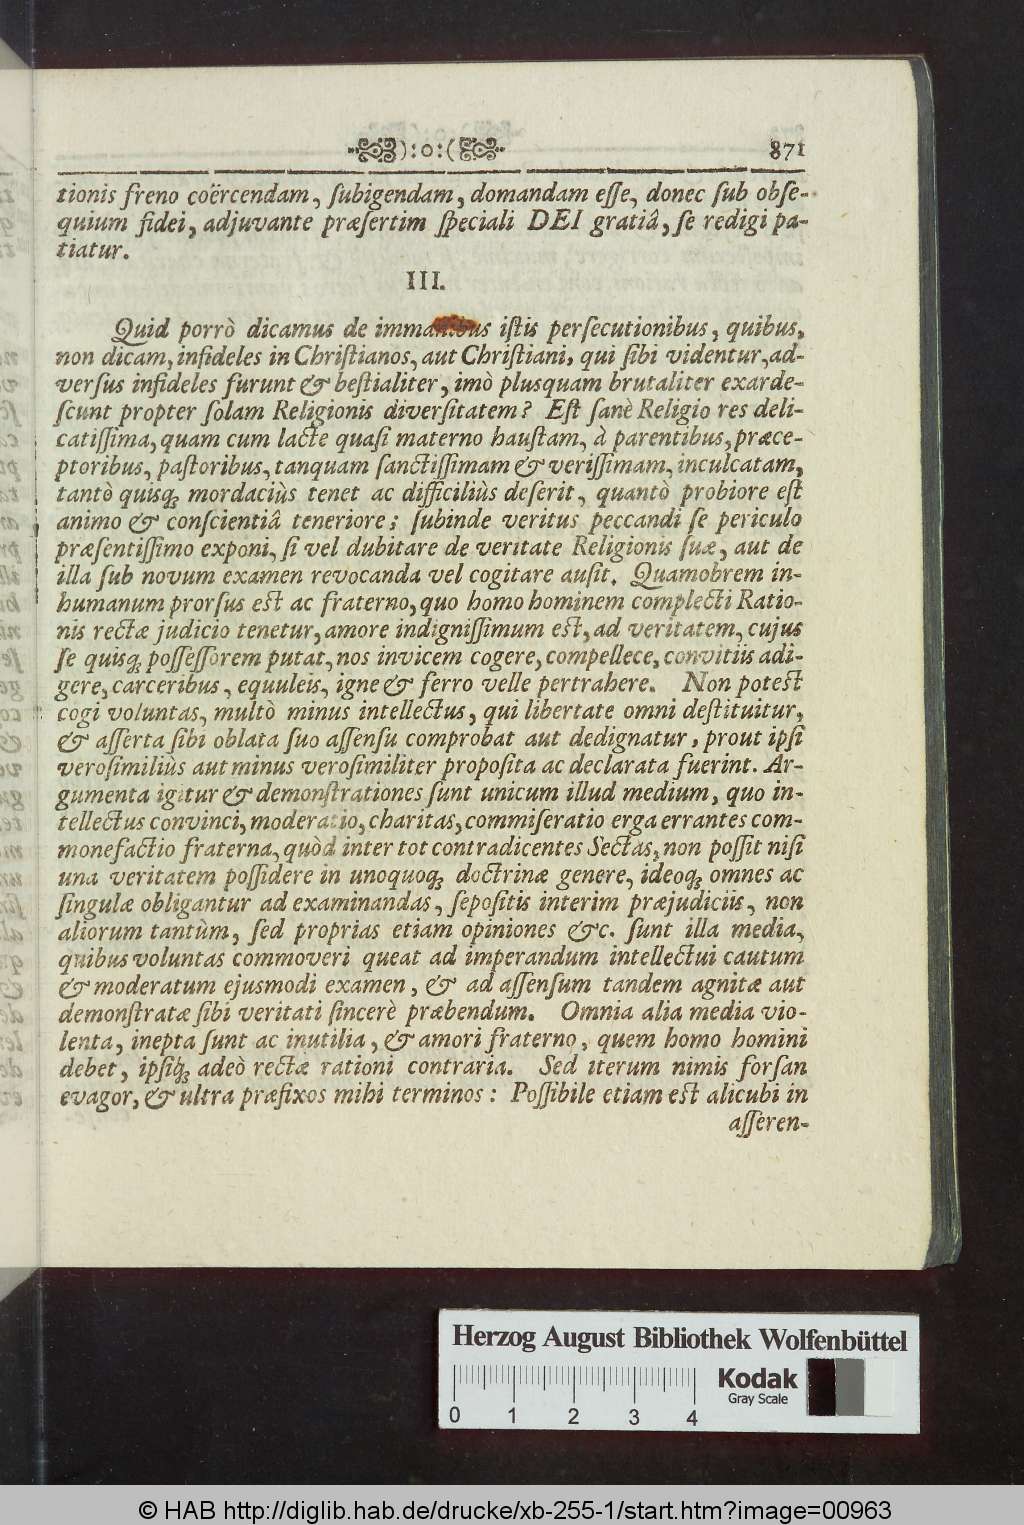 ):o:( 871
tionis freno coërcendam, ſubigendam, domandam eſſe, donec ſub obſe-
quium fidei, adjuvante præſertim ſpeciali DEI gratiâ, ſe redigi pa-
tiatur.
III.
Quid porrò dicamus de immanibus iſtis perſecutionibus, quibus,
non dicam, infideles in Chriſtianos, aut Chriſtiani, qui ſibi videntur, ad-
verſus infideles furunt & beſtialiter, imò plusquam brutaliter exarde-
ſcunt propter ſolam Religionis diverſitatem? Eſt ſanè Religio res deli-
catiſſima, quam cum lacte quaſi materno hauſtam, à parentibus, præce-
ptoribus, paſtoribus, tanquam ſanctiſſimam & veriſſimam, inculcatam,
tantò quisq; mordaciùs tenet ac difficiliùs deſerit, quantò probiore eſt
animo & conſcientiâ teneriore; ſubinde veritus peccandi ſe periculo
præſentiſſimo exponi, ſi vel dubitare de veritate Religionis ſuæ, aut de
illa ſub novum examen revocanda vel cogitare auſit. Quamobrem in-
humanum prorſus eſt ac fraterno, quo homo hominem complecti Ratio-
nis rectæ judicio tenetur, amore indigniſſimum eſt, ad veritatem, cujus
ſe quisq; poſſeſſorem putat, nos invicem cogere, compellece, convitiis adi-
gere, carceribus, equuleis, igne & ferro velle pertrahere. Non poteſt
cogi voluntas, multò minus intellectus, qui libertate omni deſtituitur,
& aſſerta ſibi oblata ſuo aſſenſu comprobat aut dedignatur, prout ipſi
veroſimiliùs aut minus veroſimiliter propoſita ac declarata fuerint. Ar-
gumenta igitur & demonſtrationes ſunt unicum illud medium, quo in-
tellectus convinci, moderatio, charitas, commiſeratio erga errantes com-
monefactio fraterna, quòd inter tot contradicentes Sectas, non poſſit niſi
una veritatem poſſidere in unoquoq; doctrinæ genere, ideoq; omnes ac
ſingulæ obligantur ad examinandas, ſepoſitis interim præjudiciis, non
aliorum tantùm, ſed proprias etiam opiniones &c. ſunt illa media,
quibus voluntas commoveri queat ad imperandum intellectui cautum
& moderatum ejusmodi examen, & ad aſſenſum tandem agnitæ aut
demonſtratæ ſibi veritati ſincerè præbendum. Omnia alia media vio-
lenta, inepta ſunt ac inutilia, & amori fraterno, quem homo homini
debet, ipſiq; adeò rectæ rationi contraria. Sed iterum nimis forſan
evagor, & ultra præfixos mihi terminos: Poſſibile etiam eſt alicubi in
aſſeren-
Herzog August Bibliothek Wolfenbüttel
Kodak
Gray Scale
0 1 2 3 4
© HAB http://diglib.hab.de/drucke/xb-255-1/start.htm?image=00963